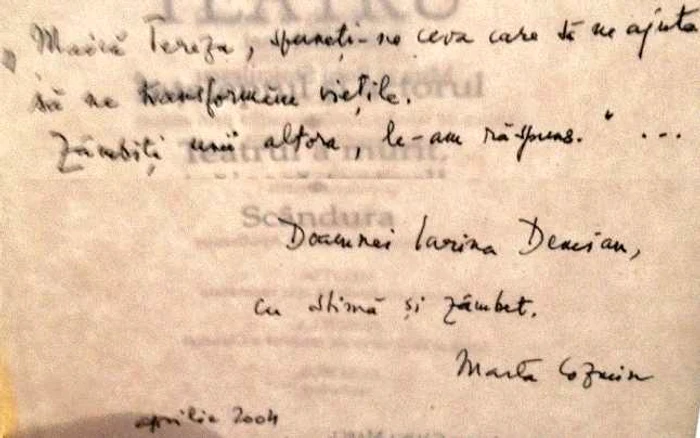 TEATRU
„Maică Tereza, spuneți-ne ceva care să ne ajute
să ne transformăm viețile.
Zâmbiți unii altora, le-am răspuns.“ ...
Teatrul a murit,
Scândura
Doamnei Carina Demian,
cu stimă și zâmbet.
Marta
aprilie 2004